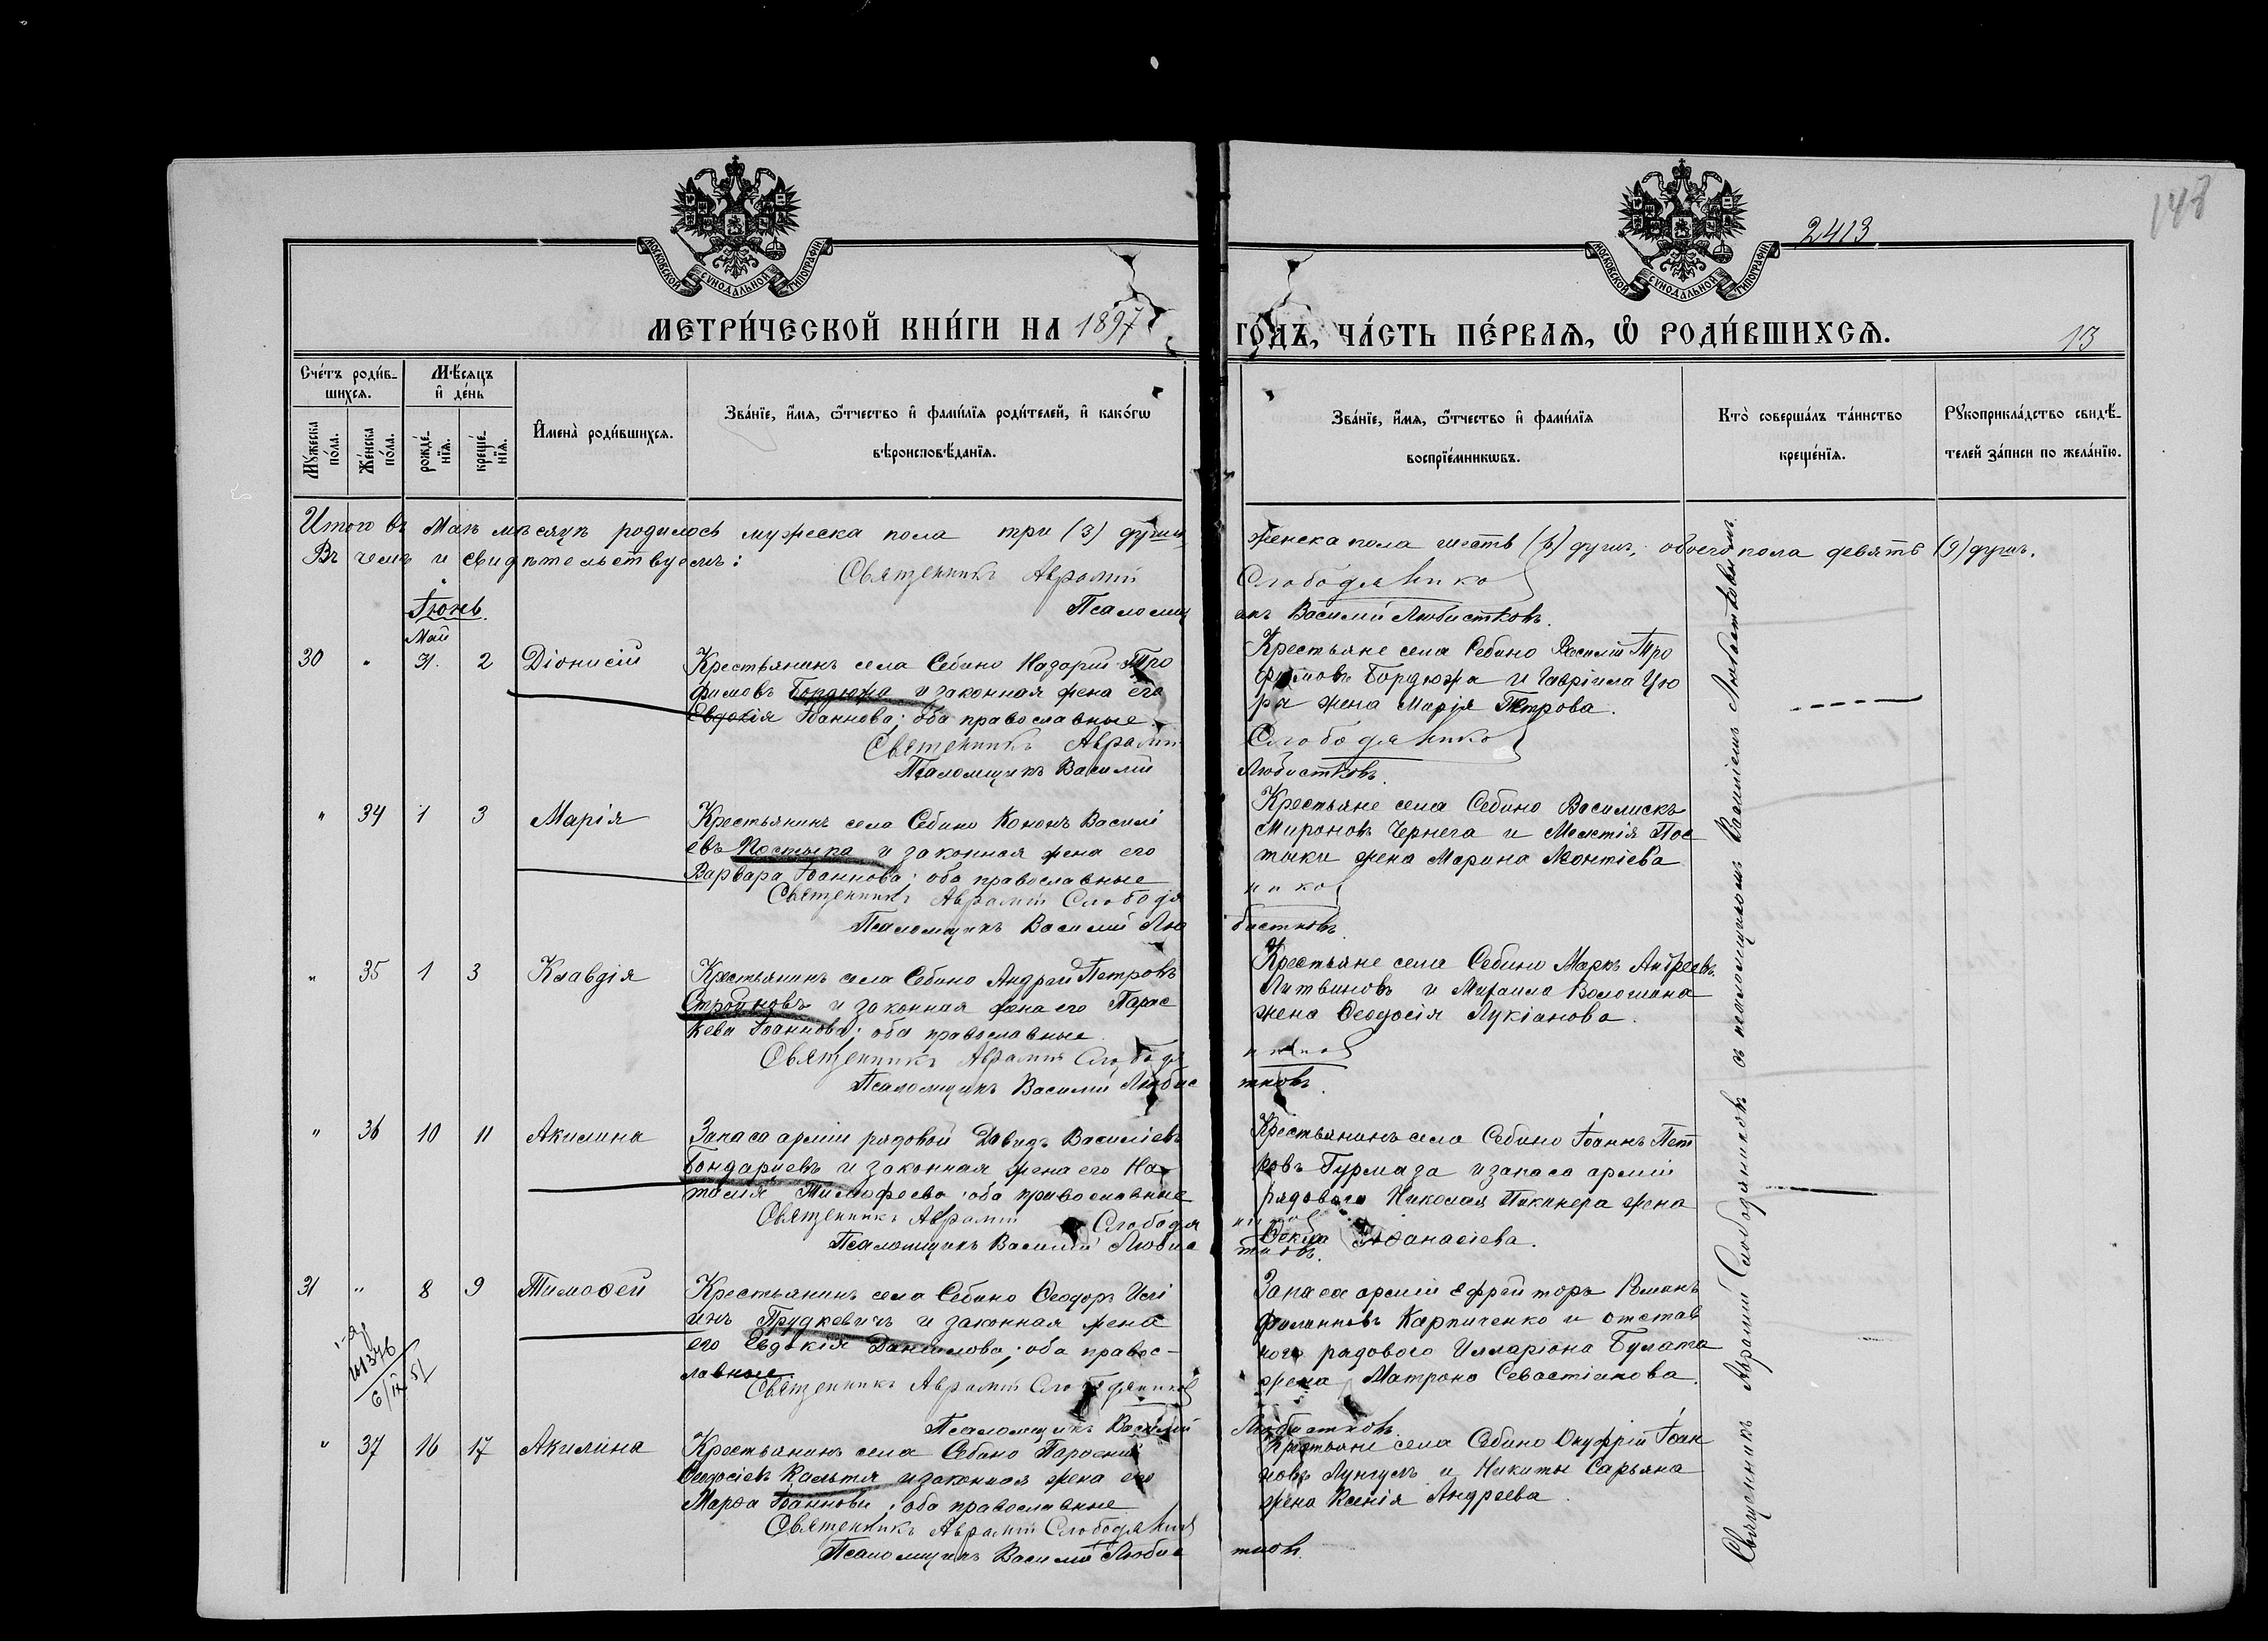 148
2413
МОСКОВСКОЙ СѴНОДАЛЬНОЙ ТИПОГРАФІИ
МОСКОВСКОЙ СѴНОДАЛЬНОЙ ТИПОГРАФІИ
МЕТРИ́ЧЕСКОЙ КНИ́ГИ НА 1897 ГО́ДЪ, ЧА́СТЬ ПЕ́РВАЯ, Ѡ РОДИ́ВШИХСЯ.
13
Сче́тъ роди́в-
шихся.
Мѣ́сяцъ
и де́нь
Мꙋ́жеска
по́ла.
Же́нска
по́ла.
рожде́-
нїя.
креще́-
нїя.
Имена̀ роди́вшихся.
Зва́нїе, и́мя, ѻ́тчество и фами́лїя роди́телей, и како́гѡ
вѣроисповѣ́данїя.
Зва́нїе, и́мя, ѻ́тчество и фами́лїя
воспрїе́мникѡвъ.
Кто̀ соверша́лъ та́инство
креще́нїя.
Рꙋкоприкла́дство свидѣ́-
телей за́писи по жела́нїю.
Итого въ Маѣ мѣсяцѣ родилось мужеска пола три (3) души, женска пола шесть (6) душъ, обоего пола девять (9) душъ.
Въ чемъ и свидѣтельствуемъ:
Священникъ Аврамій Слободянико
Псаломщикъ Василій Любистковъ.
Іюнь.
Май
30 " 31. 2 Діонисій
Крестьянинъ села Себино Назарій Тро
фимовъ Бордюжа и законная жена его
Евдокія Іоаннова; оба православные.
Священникъ Аврамій Слободянико
Псаломщикъ Василій Любистковъ.
Крестьяне села Себино Василій Тро
фимовъ Бордюжа и Гавріила Цю
ра жена Марія Петрова.
" 34 1 3 Марія
Крестьянинъ села Себино Кононъ Василі
евъ Костыка и законная жена его
Варвара Іоаннова; оба православные
Священникъ Аврамій Слободянико
Псаломщикъ Василій Любистковъ.
Крестьяне села Себино Василискъ
Мироновъ Чернега и
жена Марина Леонтіева
" 35 1 3 Клавдія
Крестьянинъ села Себино Андрей Петровъ
Стройновъ и законная жена его Парас
кева Іоаннова; оба православные
Священникъ Аврамій Слободянико
Псаломщикъ Василій Любистковъ.
Крестьяне села Себино Маркъ Андреевъ
Литвиновъ и Михаила Волошина
жена Ѳеодосія Лукіанова.
" 36 10 11 Акилина
Запаса арміи рядовой Давидъ Василіевъ
Бондаревъ и законная жена его На
талія Тимофеева; оба православные
Священникъ Аврамій Слободянико
Псаломщикъ Василій Любистковъ.
Крестьянинъ села Себино Іоаннъ Пет
ровъ Гурмаза и запаса арміи
рядового Николая Пикинера жена
Ѳекла Аѳанасіева.
31 " 8 9 Тимоѳей
Крестьянинъ села Себино Ѳеодоръ Илі
инъ Прудкевичъ и законная жена
его Евдокія Даниилова; оба правос-
лавные.
Священникъ Аврамій Слободянико
Псаломщикъ Василій Любистковъ.
Запаса арміи ефрейторъ Романъ
Филипповъ Карпиченко и отстав
ного рядового Илларіона Булата
жена Матрона Севастіанова.
" 37 16 17 Акилина
Крестьянинъ села Себино Парѳеній
Ѳеодосіевъ Калытя и законная жена его
Марѳа Іоаннова; оба православные
Священникъ Аврамій Слободянико
Псаломщикъ Василій Любистковъ.
Крестьяне села Себино Онуфрій Іоан
новъ Лунгулъ и Никиты Сарьяна
жена Ксенія Андреева.
Священникъ Аврамій Слободяниковъ съ псаломщикомъ Василіемъ Любистковымъ.